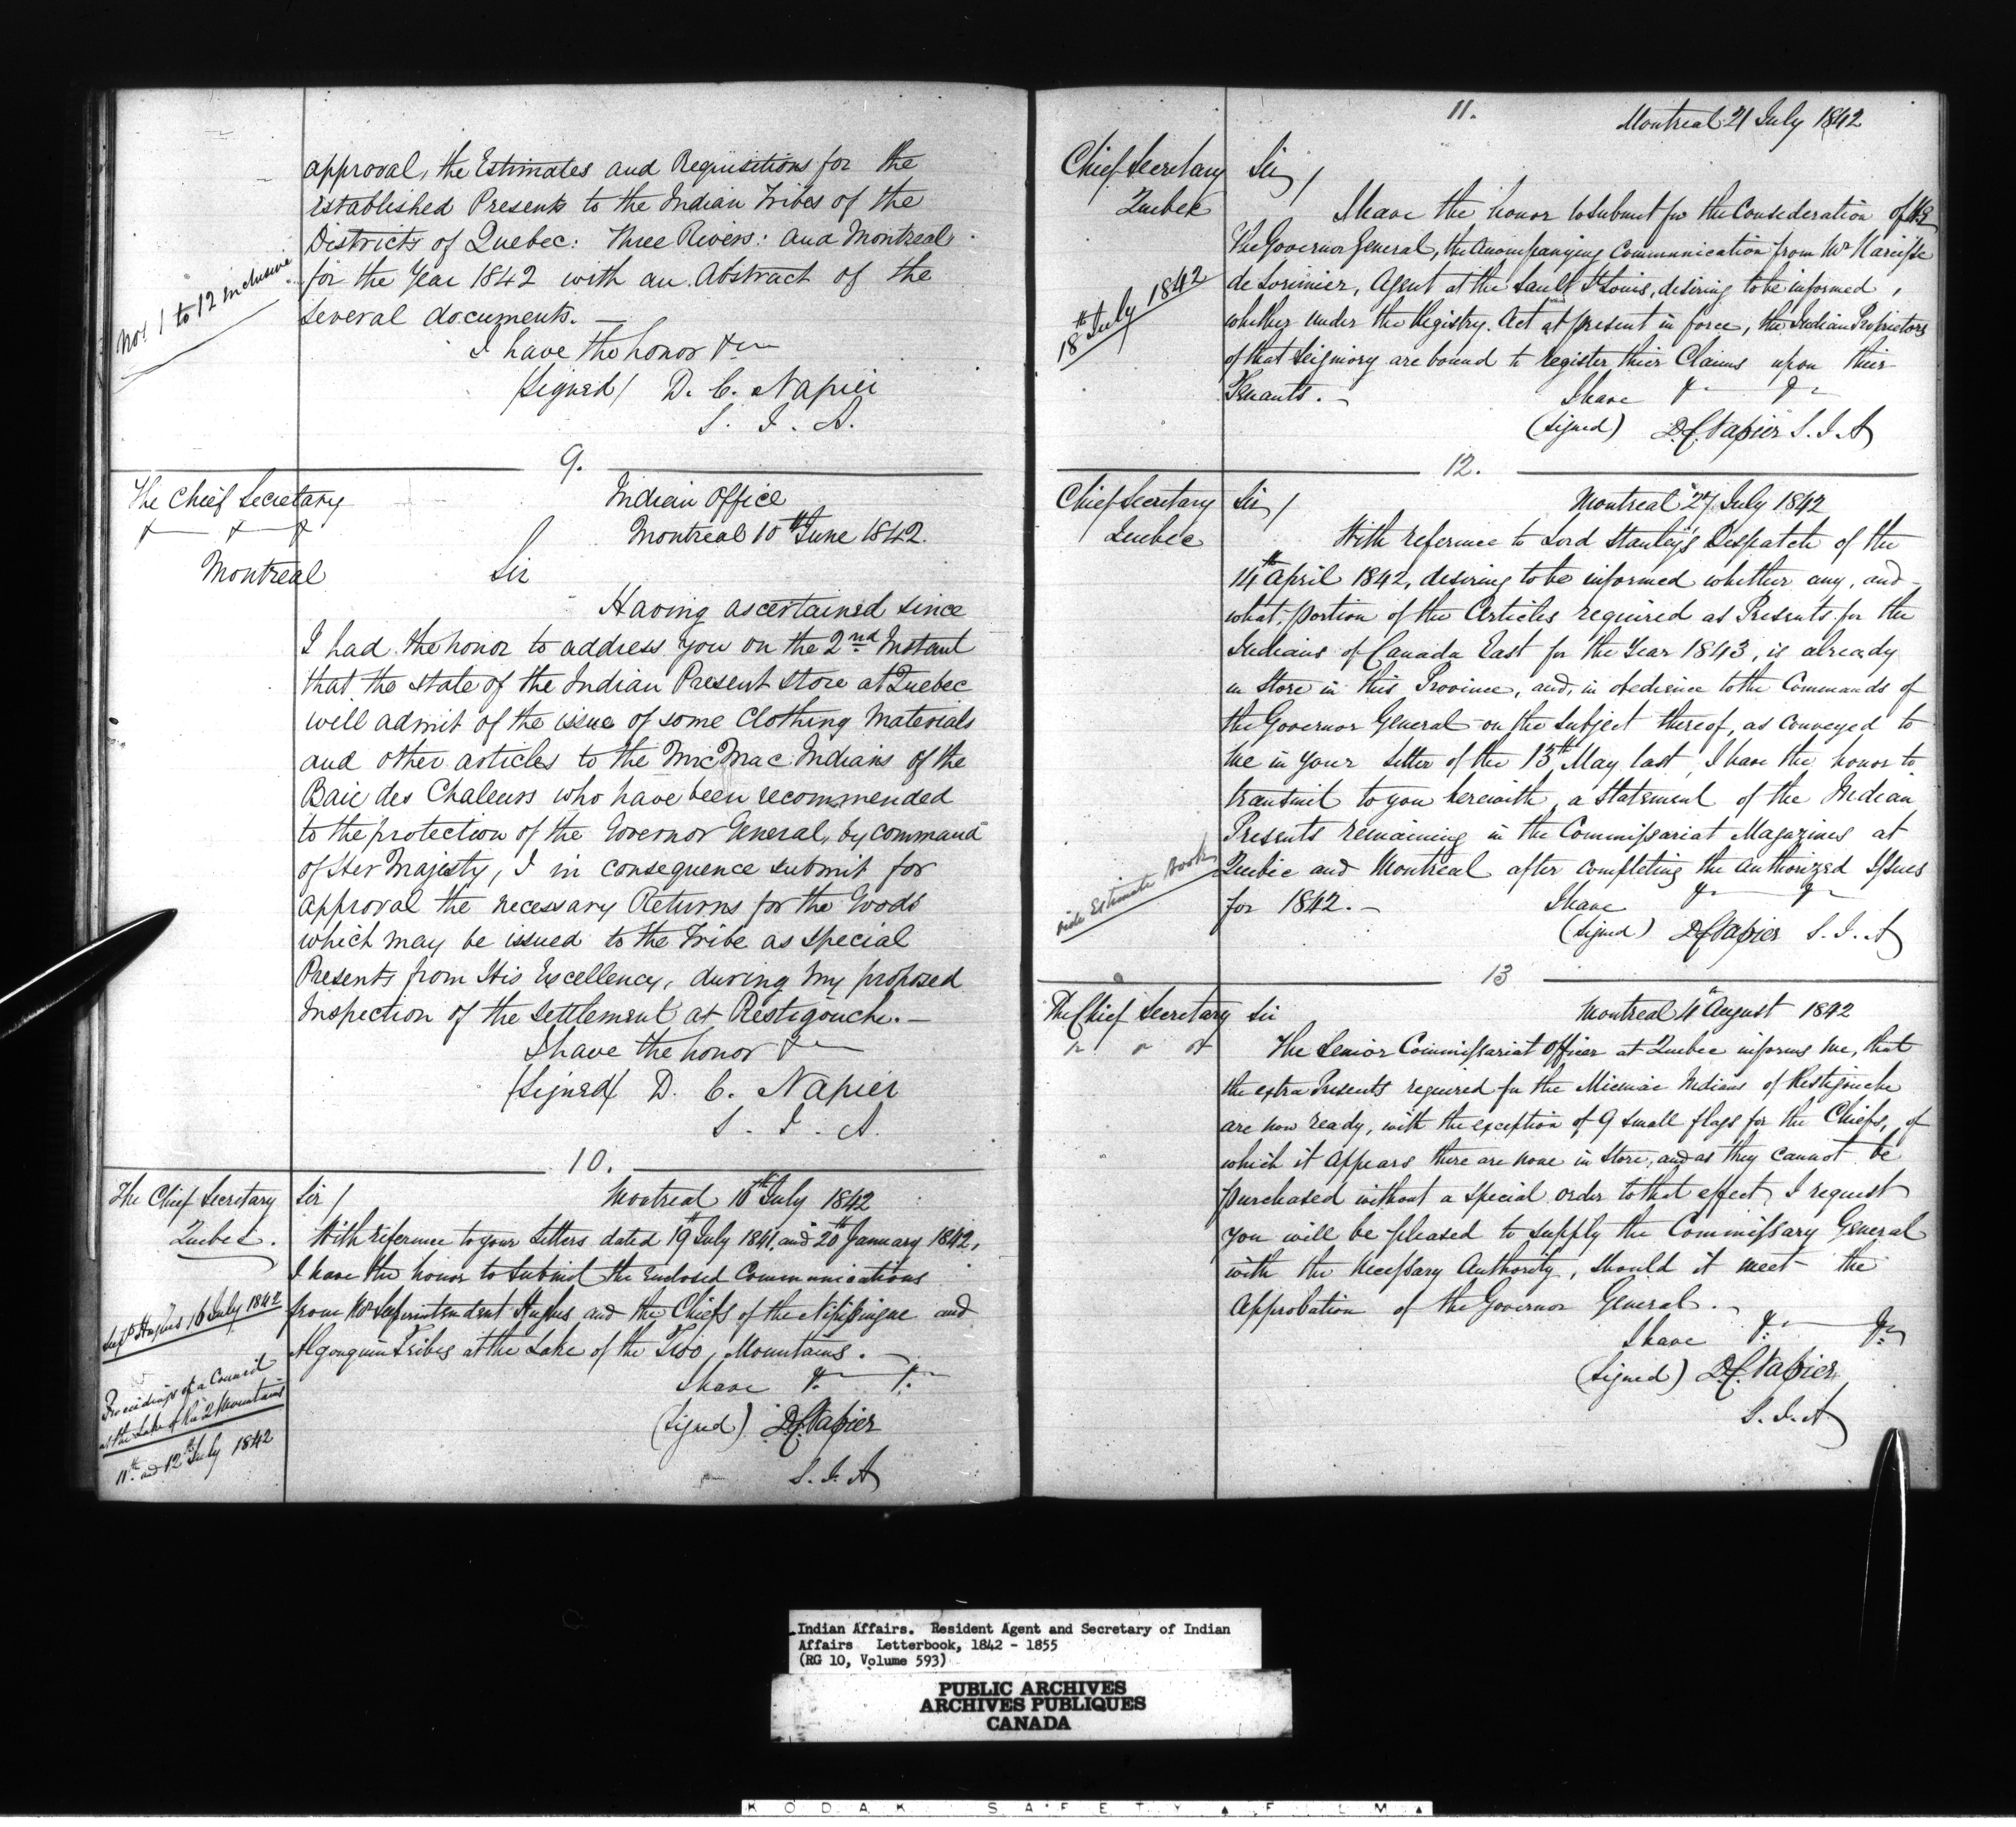 approval, the Estimates and Requisitions for the
Established Presents to the Indian Tribes of the
Districts of Quebec: Three Rivers: and Montreal
Nos. 1 to 12 inclusive
for the Year 1842 with an Abstract of the
Several documents. —
I have the honor &c
(Signed) D. C. Napier
S. I. A.
9.
The Chief Secretary
& & &
Montreal
Indian Office
Montreal 10th June 1842.
Sir
Having ascertained since
I had the honor to address you on the 2nd Instant
that the state of the Indian Present Store at Quebec
will admit of the issue of some Clothing Materials
and other articles to the MicMac Indians of the
Baie des Chaleurs who have been recommended
to the protection of the Governor General, by command
of Her Majesty, I in consequence submit for
approval the necessary Returns for the Goods
which may be issued to the Tribe as special
Presents from His Excellency, during my proposed
Inspection of the Settlement at Restigouche. —
I have the honor &c
(Signed) D. C. Napier
S. I. A.
10.
The Chief Secretary
Quebec.
Sir /
Montreal 16th July 1842
With reference to your Letters dated 19th July 1841, and 20th January 1842,
I have the honor to Submit the Enclosed Communications
from Mr Superintendent Hughes and the Chiefs of the Nipissingue and
Algonquin Tribes at the Lake of the Two Mountains. —
Supt Hughes 16 July 1842
Proceedings of a Council
at the Lake of the 2 Mountains
11th and 12th July 1842
I have &c &c
(Signed) D.C. Napier
S. I. A
11.
Montreal 21 July 1842
Chief Secretary
Quebec
Sir /
I have the honor to submit for the Consideration of H.E
The Governor General, the Accompanying Communication from Mr Narcisse
18th July 1842
de Lorimier, Agent at the Sault St Louis, desiring to be informed,
whether under the Registry Act at present in force, the Indian Proprietors
of that Seigniory are bound to register their Claims upon their
Tenants. —
I have &c &c
(Signed) D.C. Napier S. I. A
12.
Chief Secretary
Quebec
Sir /
Montreal 27 July 1842
With reference to Lord Stanley's Despatch of the
14th April 1842, desiring to be informed whether any, and
what portion of the Articles required as Presents for the
Indians of Canada East for the Year 1843, is already
in Store in this Province, and, in obedience to the Commands of
the Governor General on the subject thereof, as conveyed to
me in your Letter of the 13th May last, I have the honor to
transmit to you herewith, a Statement of the Indian
Presents remaining in the Commissariat Magazines at
Vide Estimate Book
Quebec and Montreal after completing the authorized Issues
for 1842. —
I have &c &c
(Signed) D.C. Napier S. I. A
13
The Chief Secretary
Sir
Montreal August 1842
The Senior Commissariat Officer at Quebec informs me, that
the extra Presents required for the Micmac Indians of Restigouche
are now ready, with the exception of 9 small flags for the Chiefs, of
which it appears there are none in Store, and as they cannot be
purchased without a special order to that effect, I request
you will be pleased to supply the Commissary General
with the necessary Authority, should it meet the
Approbation of the Governor General. —
I have &c &c
(Signed) D.C. Napier
S. I. A
Indian Affairs. Resident Agent and Secretary of Indian
Affairs Letterbook, 1842 - 1855
(RG 10, Volume 593)
PUBLIC ARCHIVES
ARCHIVES PUBLIQUES
CANADA
KODAK SAFETY ▲ FILM ▲